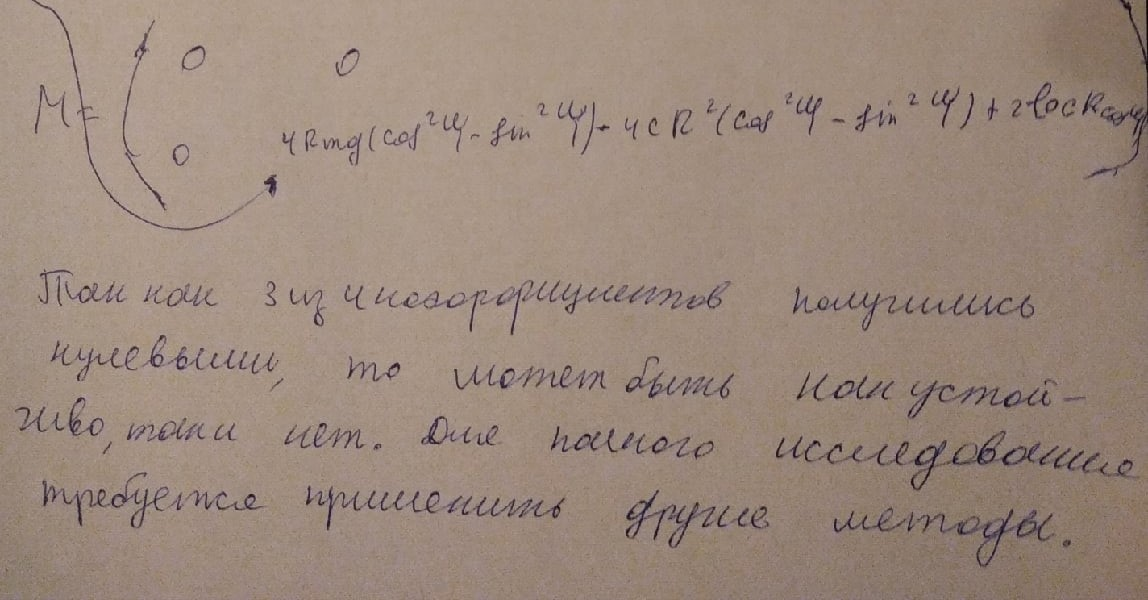 0 0
M = 0 4Rmg(cos²φ - sin²φ) - 4cR²(cos²φ - sin²φ) + 2l₀cR cosφ
Так как 3 из 4 коэфффициентов получились
нулевыми, то может быть как устой-
чиво, так и нет. Для полного исследования
требуется применить другие методы.